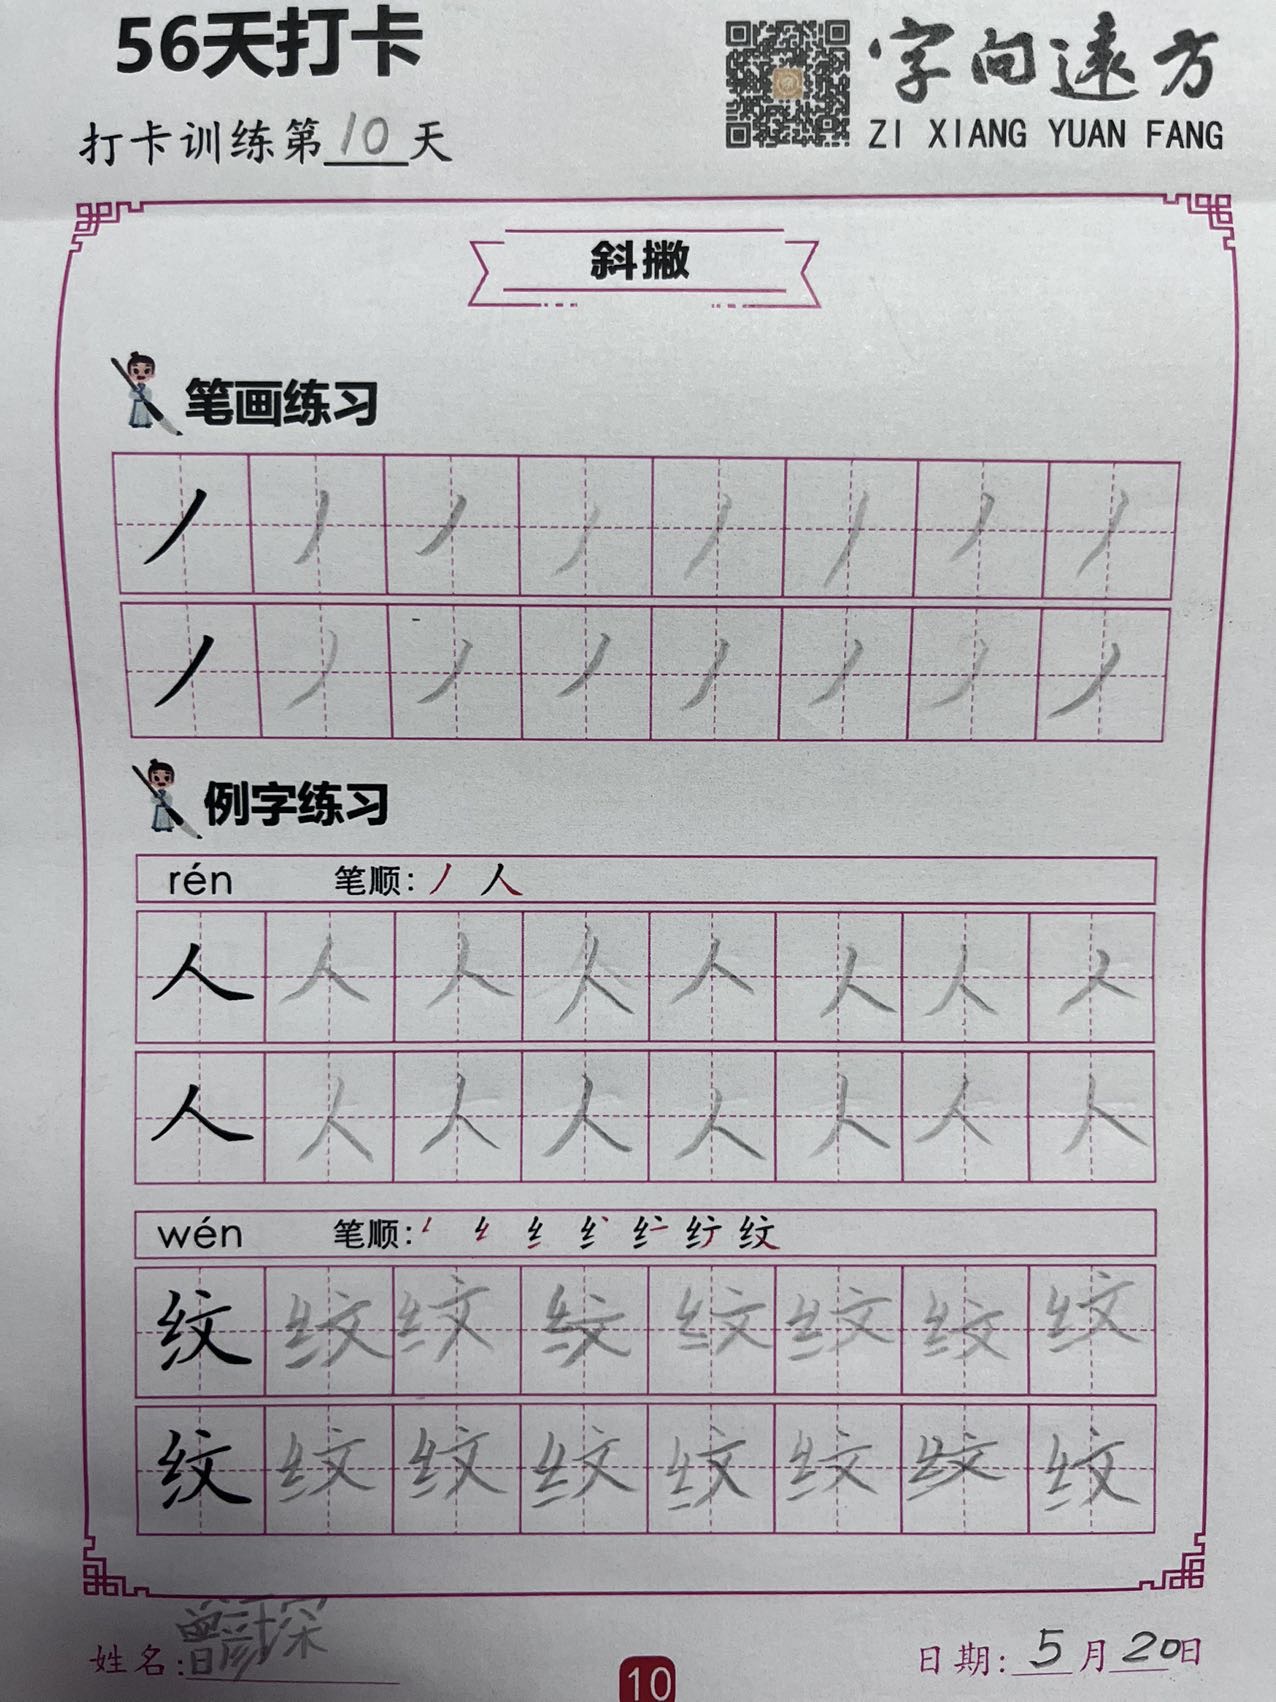 56天打卡
字向远方
打卡训练第10天
ZI XIANG YUAN FANG
斜撇
笔画练习
丿丿丿丿丿丿丿丿
丿丿丿丿丿丿丿丿
例字练习
rén 笔顺:丿 人
人人人人人人人人
人人人人人人人人
wén 笔顺: 纹
纹纹纹纹纹纹纹纹
纹纹纹纹纹纹纹纹
姓名:曾 深
日期:5月20日
10